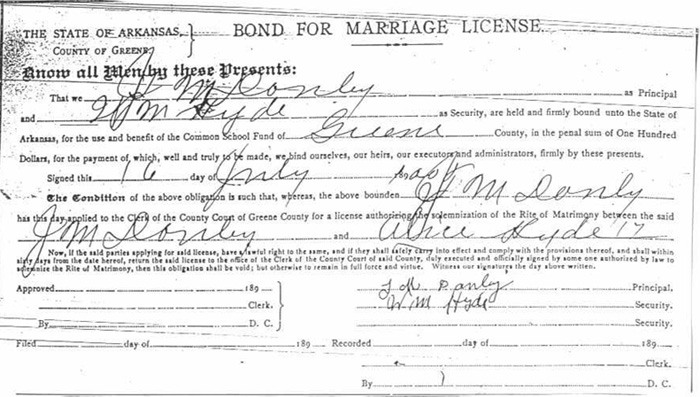 THE STATE OF ARKANSAS, } BOND FOR MARRIAGE LICENSE.
COUNTY OF GREENE
Know all Men by these Presents:
That we J M Donley as Principal
and W M Hyde as Security, are held and firmly bound unto the State of
Arkansas, for the use and benefit of the Common School Fund of Greene County, in the penal sum of One Hundred
Dollars, for the payment of which, well and truly to be made, we bind ourselves, our heirs, our executors and administrators, firmly by these presents.
Signed this 16 day of July
The Condition of the above obligation is such that, whereas, the above bounden J M Donly
has this day applied to the Clerk of the County Court of Greene County for a license authorizing the solemnization of the Rite of Matrimony between the said
J M Donley and Alice Hyde 17
Now, if the said parties applying for said license, have a lawful right to the same, and if they shall safely carry into effect and comply with the provisions thereof, and shall within
sixty days from the date hereof, return the said license to the office of the Clerk of the County Court of said County, duly executed and officially signed by some one authorized by law to
solemnize the Rite of Matrimony, then this obligation shall be void; but otherwise to remain in full force and virtue. Witness our signatures the day above written.
Approved 189 J M Danly Principal.
Clerk. W M Hyde Security.
By D. C. Security.
Filed day of 189 Recorded day of 189
Clerk.
By D. C.